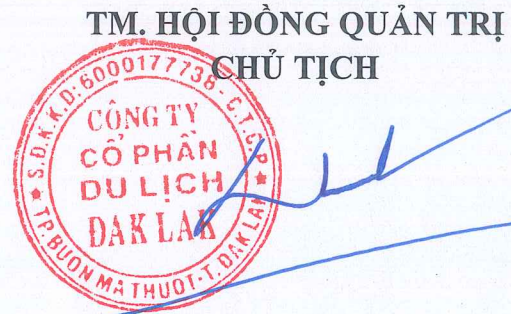 TM. HỘI ĐỒNG QUẢN TRỊ
CHỦ TỊCH
S.Đ.K.K.D:6000177736-C.T.C.P
CÔNG TY
CỔ PHẦN
DU LỊCH
ĐAK LAK
TP.BUÔN MA THUỘT-T.ĐAK LAK